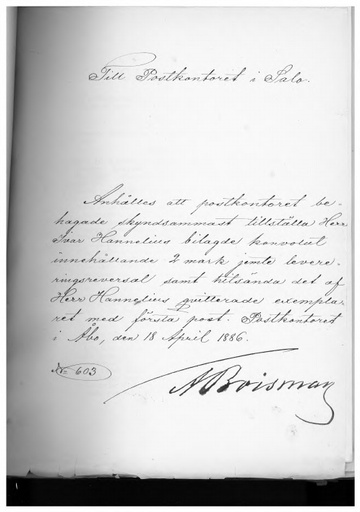 Till Postkontoret i Salo.
Anhålles att postkontoret be-
hagade skyndsammast tillställa Herr
Ivar Hannelius bilagde konvolut
innehållande 2 mark jemte levere-
ringsreversal samt hitsända det af
Herr Hannelius qvitterade exempla-
ret med första post. Postkontoret
i Åbo, den 18 April 1886.
No 603
A Boisman